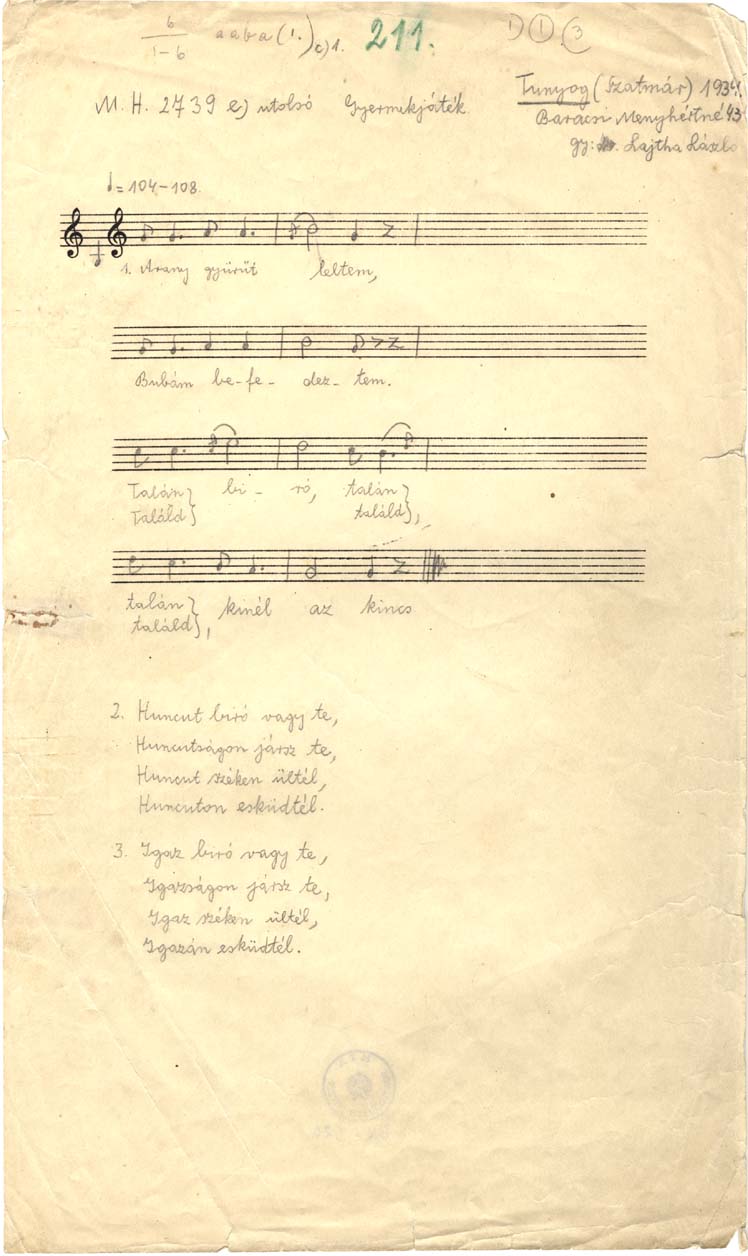 6
1-6
a a b a (1.) c) 1.
211.
1) 1 (3
M. H. 2739 e) utolsó Gyermekjáték
Tunyog (Szatmár) 1934.
Baracsi Menyhértné 43
gy: Lajtha László
= 104-108.
1. Arany gyürüt leltem,
Bubám be-fe- dez- tem.
Talán} bi - ró, talán}
Találd} találd},
talán} kinél az kincs
találd},
2. Huncut biró vagy te,
Huncutságon jársz te,
Huncut széken ültél,
Huncuton esküdtél.
3. Igaz biró vagy te,
Igazságon jársz te,
Igaz széken ültél,
Igazán esküdtél.